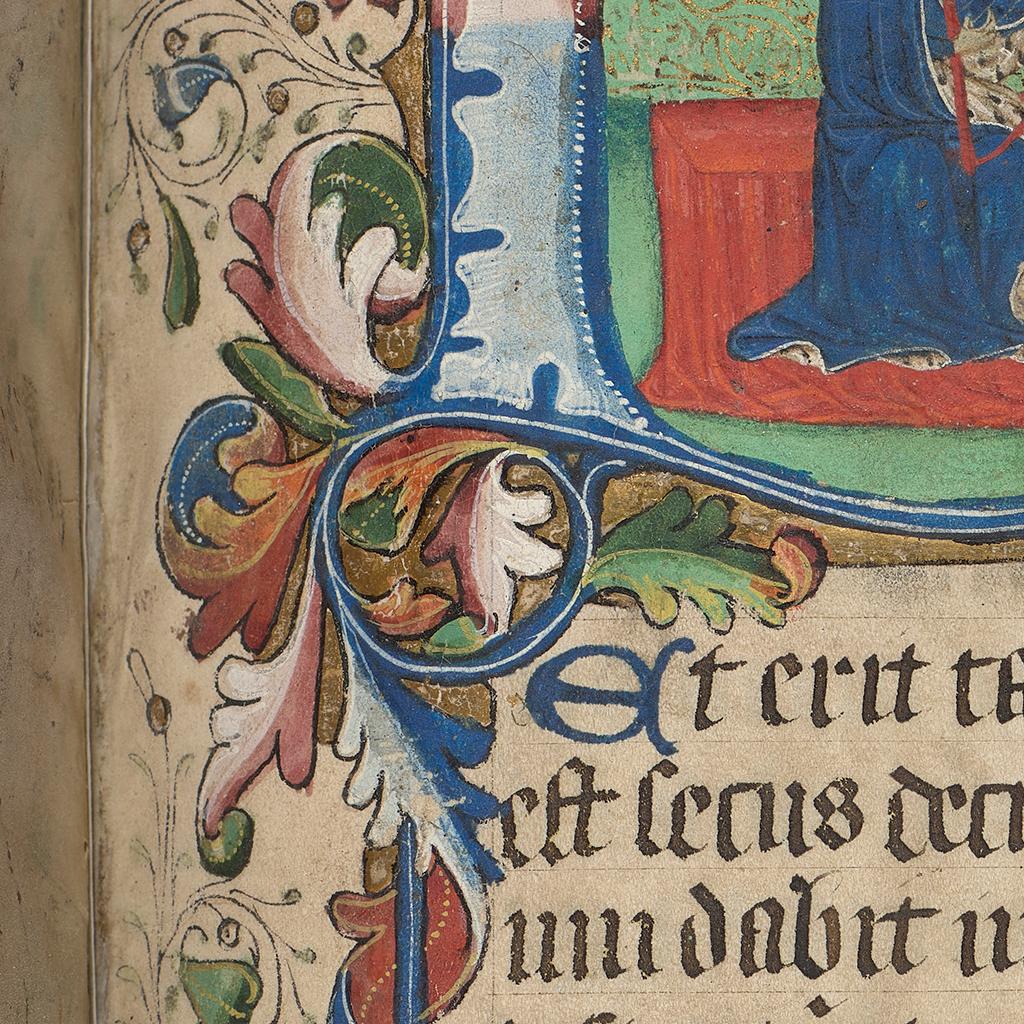 Et erit ta
est secus decu
um dabit in